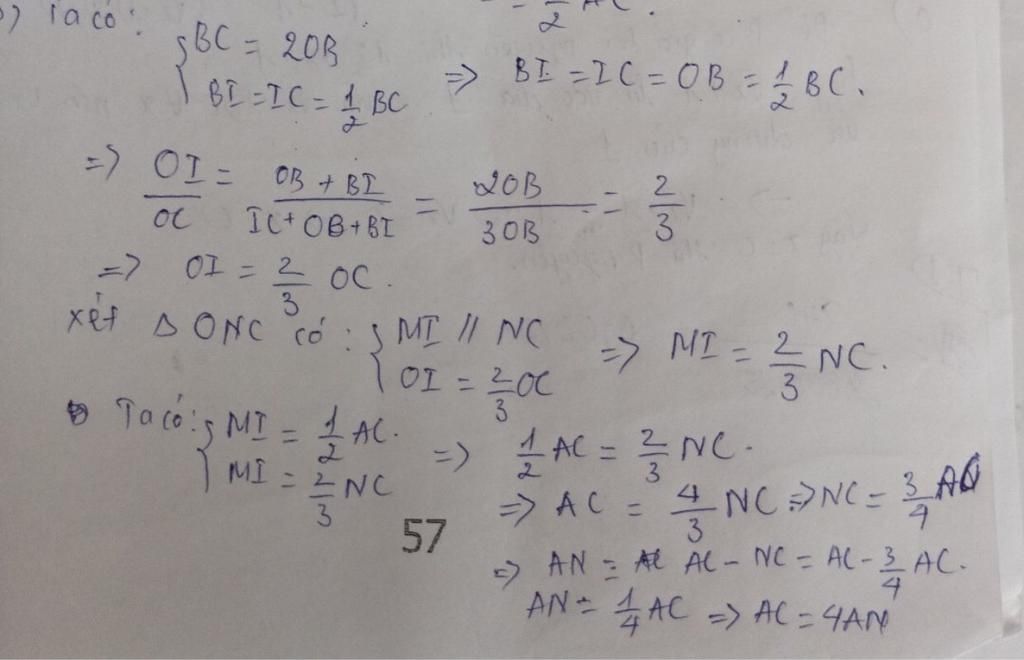 b) Ta có: = 1/2 AC.
{ BC = 2OB
{ BI = IC = 1/2 BC => BI = IC = OB = 1/2 BC.
=> OI/OC = (OB + BI)/(IC + OB + BI) = 2OB/3OB = 2/3
=> OI = 2/3 OC.
xét Δ ONC có: { MI // NC
{ OI = 2/3 OC => MI = 2/3 NC.
Ta có: { MI = 1/2 AC.
{ MI = 2/3 NC => 1/2 AC = 2/3 NC.
=> AC = 4/3 NC => NC = 3/4 AC
57
=> AN = AC - NC = AC - 3/4 AC.
AN = 1/4 AC => AC = 4AN